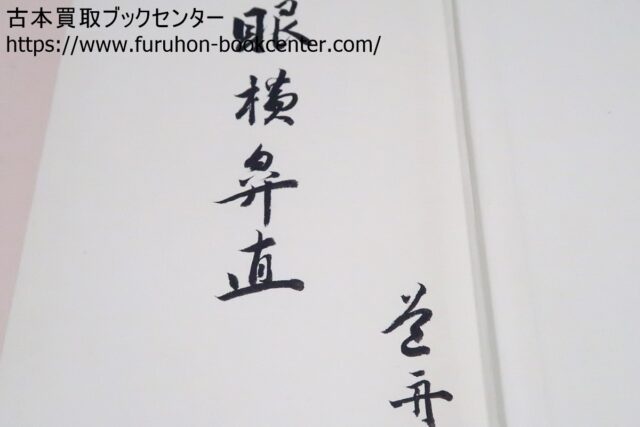 古本買取ブックセンター
https://www.furuhon-bookcenter.com/
眼横鼻直